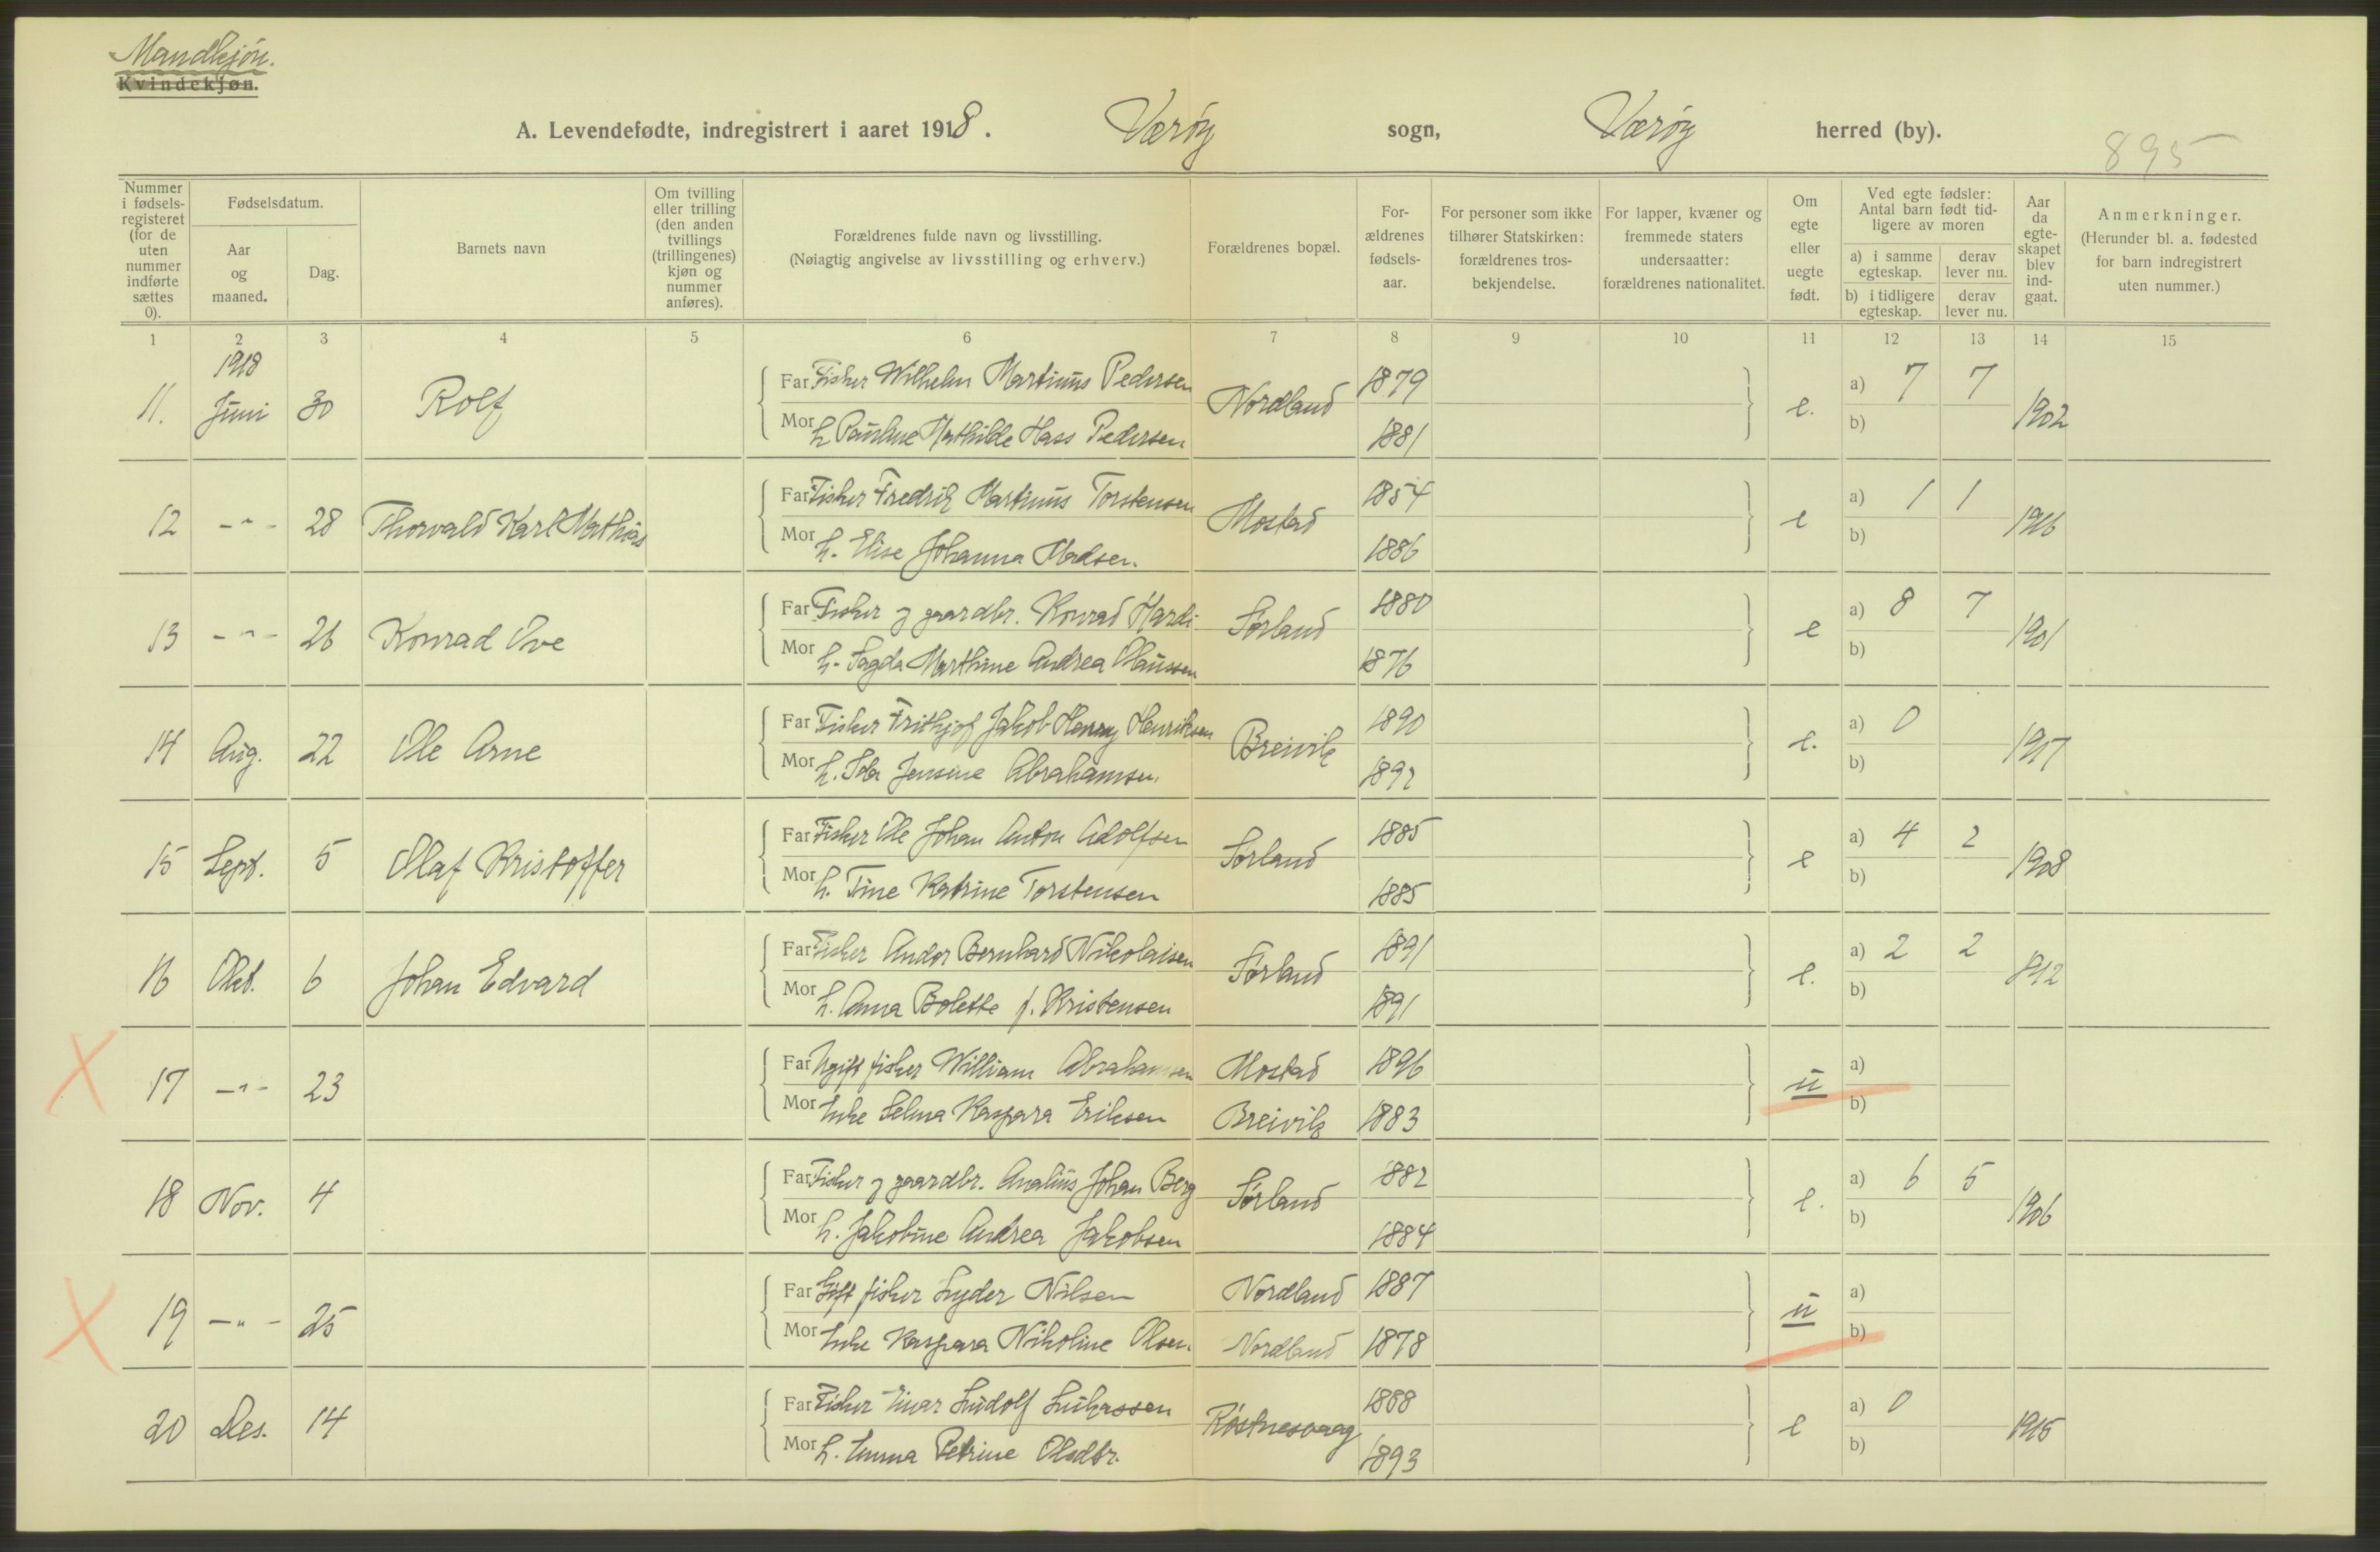 Mandkjøn.
Kvindekjøn.
A. Levendefødte, indregistrert i aaret 1918. Værøy sogn, Værøy herred (by).
895
Nummer i fødselsregisteret (for de uten nummer indførte sættes 0).
Fødselsdatum.
Aar og maaned.
Dag.
Barnets navn
Om tvilling eller trilling (den anden tvillings (trillingenes) kjøn og nummer anføres).
Forældrenes fulde navn og livsstilling.
(Nøiagtig angivelse av livsstilling og erhverv.)
Forældrenes bopæl.
Forældrenes fødselsaar.
For personer som ikke tilhører Statskirken: forældrenes trosbekjendelse.
For lapper, kvæner og fremmede staters undersaatter: forældrenes nationalitet.
Om egte eller uegte født.
Ved egte fødsler: Antal barn født tidligere av moren
a) i samme egteskap.
derav lever nu.
b) i tidligere egteskap.
derav lever nu.
Aar da egteskapet blev indgaat.
Anmerkninger.
(Herunder bl. a. fødested for barn indregistrert uten nummer.)
1 2 3 4 5 6 7 8 9 10 11 12 13 14 15
1918
11. Juni 30 Rolf Far Fisker Wilhelm Martinus Pedersen Nordland 1879 e. a) 7 7 1902
Mor h. Pauline Mathilde Hass Pedersen 1881 b)
12 -"- 28 Thorvald Karl Mathias Far Fisker Fredrik Martinus Torstensen Mostad 1854 e a) 1 1 1916
Mor h. Elise Johanna Madsen. 1886 b)
13 -"- 26 Konrad Ove Far Fisker og gaardbr. Konrad Hardi Sørland 1880 e a) 8 7 1901
Mor h. Magda Marthine Andrea Olaussen 1876 b)
14 Aug. 22 Ole Arne Far Fisker Frithjof Jakob Henry Henriksen Breivik 1890 e. a) 0 1917
Mor h. Jensine Abrahamsen. 1892 b)
15 Sept. 5 Olaf Kristoffer Far Fisker Ole Johan Anton Adolfsen Sørland 1885 e a) 4 2 1908
Mor h. Tine Katrine Torstensen 1885 b)
16 Okt. 6 Johan Edvard Far Fisker Andor Bernhard Nikolaisen Sørland 1891 e. a) 2 2 1912
Mor h. Anna Bolette f. Kristensen 1891 b)
17 -"- 23 Far Ugift fisker William Abrahamsen Mostad 1896 u a)
Mor Enke Selma Kaspara Eriksen Breivik 1883 b)
18 Nov. 4 Far Fisker og gaardbr. Analius Johan Berg Sørland 1882 e. a) 6 5 1906
Mor h. Jakobine Andrea Jakobsen 1884 b)
19 -"- 25 Far Gift fisker Lyder Nilsen Nordland 1887 u a)
Mor Enke Kaspara Nikoline Olsen. Nordland 1878 b)
20 Des. 14 Far Fisker Einar Ludolf Lukassen Røstnesvaag 1888 e a) 0 1915
Mor h. Emma Petrine Olsdtr. 1893 b)